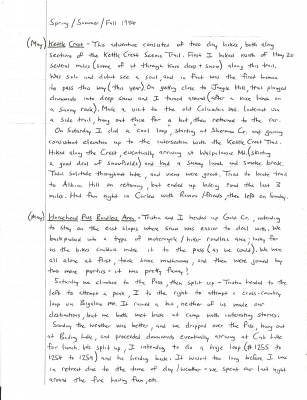 Spring / Summer / Fall 1994
(May) Kettle Crest - This adventure consisted of two day hikes, both along
sections of the Kettle Crest Scenic Trail. First I hiked north of Hwy 20
several miles (some of it through knee deep + snow) along this trail.
Was solo and didn't see a soul, and in fact was the first human
to pass this way (this year). On getting close to Jungle Hill, trail plunged
downwards into deep snow and I turned around (after a nice lunch on
a sunny rock). Made a visit to the old Columbia Mt. Lookout via
a side trail, hung out there for a bit, then returned to the car.
On Saturday I did a cool loop, starting at Sherman Cr. and gaining
consistent elevation up to the intersection with the Kettle Crest Trail.
Hiked along the Crest, eventually arriving at Wapaloosie Mt. (skirting
a good deal of snowfields) and had a sunny lunch and smoke break.
Total solitude throughout hike, and views were great. Tried to locate trail
to Albion Hill on returning, but ended up hiking road the last 3
miles. Had fun night in Curlew with Ramon / friends, then left on Sunday.
(May) Horsehead Pass Roadless Area - Trisha and I headed up Gold Cr., intending
to stay on the east slopes where snow was easier to deal with. We
backpacked into a type of motorcycle / hiker roadless area; lucky for
us the bikes couldn't make it to the pass (as we could). We were
all alone at first, took some mushrooms, and then were joined by
two more parties - it was pretty funny!
Saturday we climbed to the Pass, then split up - Trisha headed to the
left to attempt a peak, I to the right to attempt a cross-country
loop via Bigelow Mt. It rained a bit, neither of us made our
destinations, but we both met back at camp with interesting stories.
Sunday the weather was better, and we dropped over the Pass, hung out
at Boiling Lake, and proceeded downwards eventually arriving at Cub Lake
for lunch. We split up, I intending to do a huge loop (# 1255 to
1254 to 1259) and he heading back. It wasn't too long before I was
in retreat due to the time of day / weather - we spent our last night
around the fire having fun, etc.